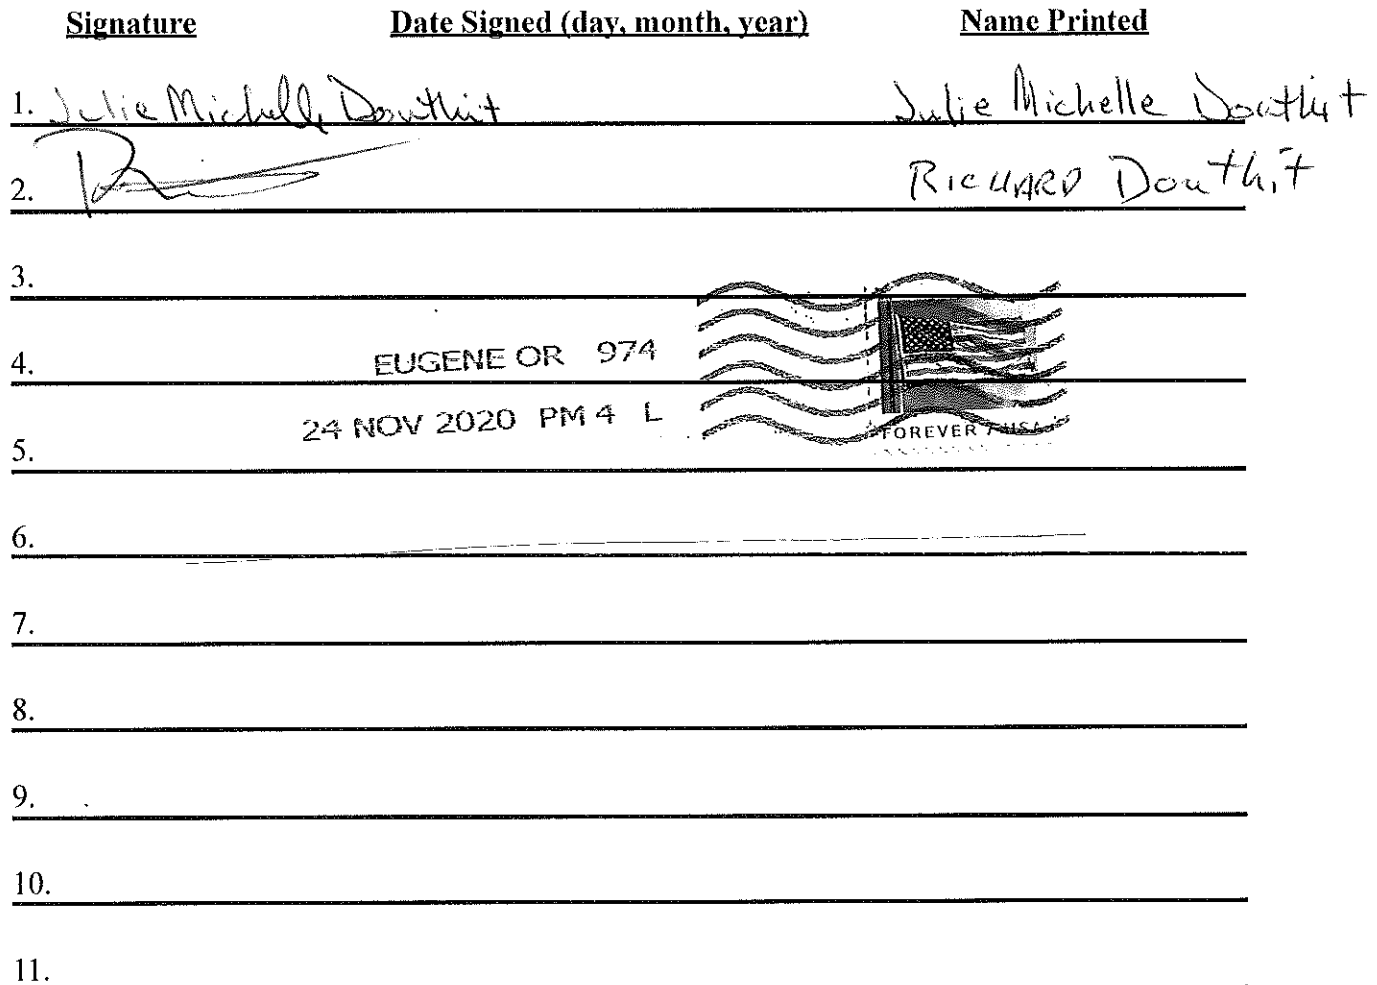 Signature Date Signed (day, month, year) Name Printed
1. Julie Michelle Douthit Julie Michelle Douthit
2. RICHARD Douthit
3.
4. EUGENE OR 974
24 NOV 2020 PM 4 L
FOREVER / USA
5.
6.
7.
8.
9.
10.
11.